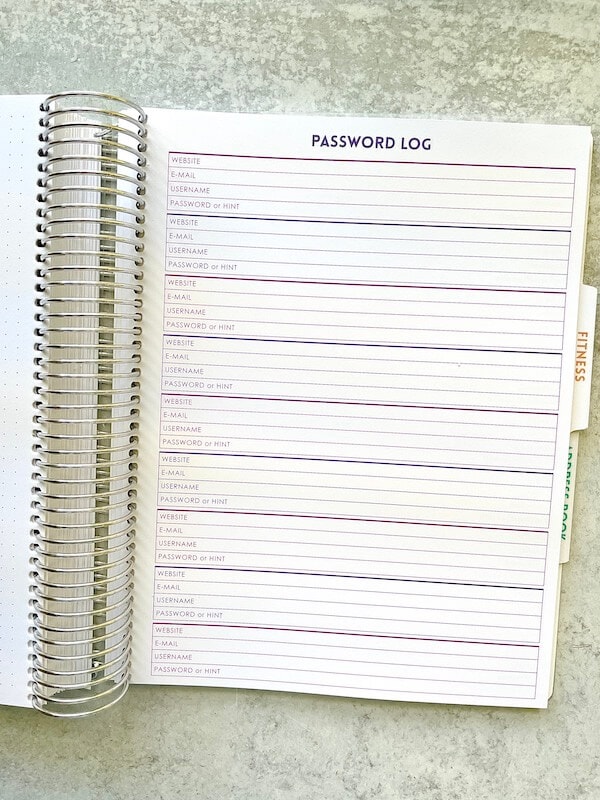 PASSWORD LOG
WEBSITE
E-MAIL
USERNAME
PASSWORD or HINT
WEBSITE
E-MAIL
USERNAME
PASSWORD or HINT
WEBSITE
E-MAIL
USERNAME
PASSWORD or HINT
WEBSITE
E-MAIL
USERNAME
PASSWORD or HINT
WEBSITE
E-MAIL
USERNAME
PASSWORD or HINT
WEBSITE
E-MAIL
USERNAME
PASSWORD or HINT
WEBSITE
E-MAIL
USERNAME
PASSWORD or HINT
WEBSITE
E-MAIL
USERNAME
PASSWORD or HINT
WEBSITE
E-MAIL
USERNAME
PASSWORD or HINT
FITNESS
ADDRESS BOOK